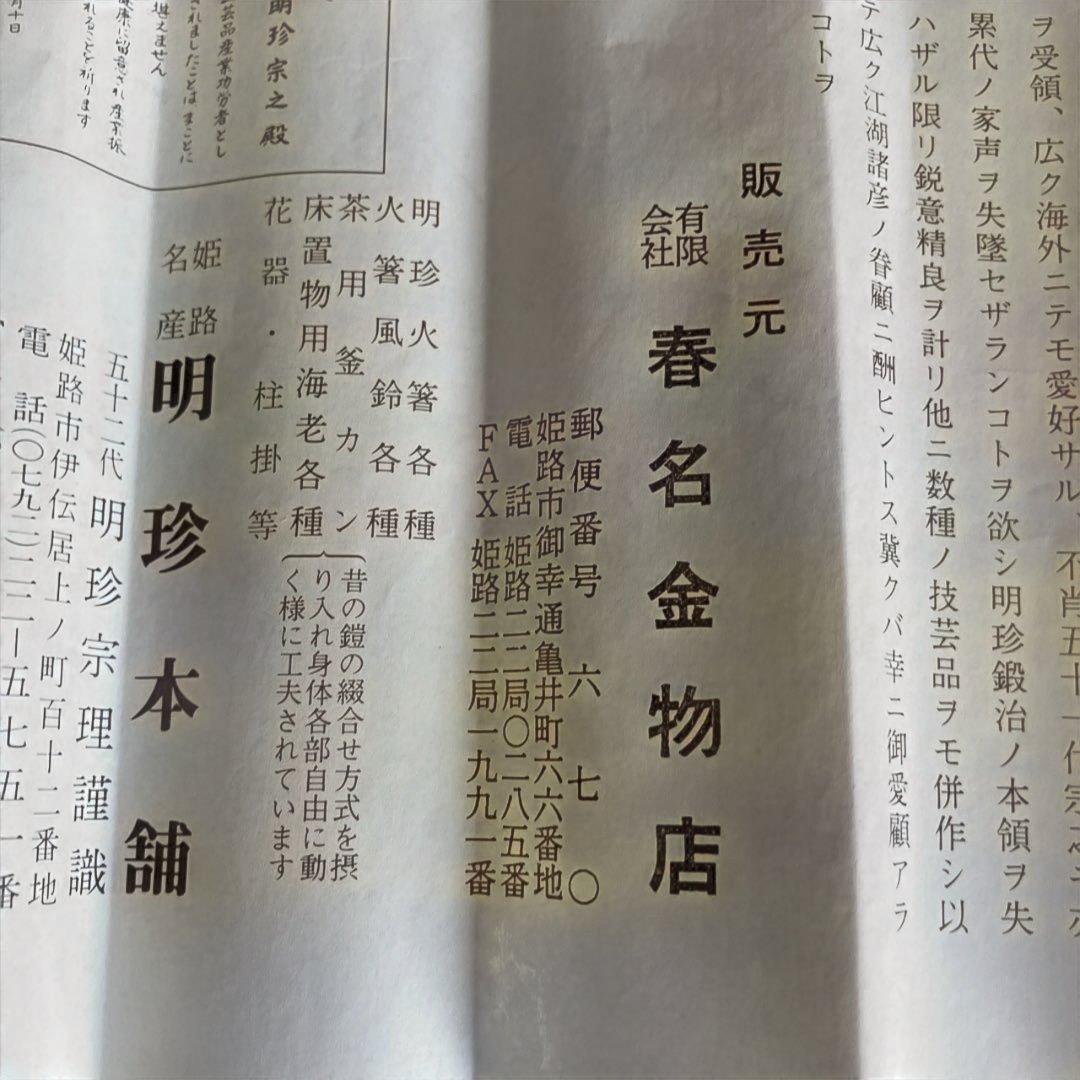 ヲ受領、広ク海外ニテモ愛好サル、不肖五十一代宗
累代ノ家声ヲ失墜セザランコトヲ欲シ明珍鍛治ノ本領ヲ失
ハザル限リ鋭意精良ヲ計リ他ニ数種ノ技芸品ヲモ併作シ以
テ広ク江湖諸彦ノ眷顧ニ酬ヒントス冀クバ幸ニ御愛顧アラ
コトヲ
販売元
有限会社 春名金物店
郵便番号 六七〇
姫路市御幸通亀井町六六番地
電話 姫路二二局〇二八五番
FAX 姫路二二局一九九一番
明珍火箸各種
火箸風鈴各種
茶用釜カン
床置物用海老各種
昔の鎧の綴合せ方式を摂
り入れ身体各部自由に動
く様に工夫されています
花器・柱掛等
姫路名産 明珍本舗
五十二代 明珍宗理謹識
姫路市伊伝居上ノ町百十二番地
電話(〇七九二)二二―五七五一番
明珍宗之殿
芸品産業功労者とし
されましたことはまことに
堪えません
健康に留意され産業振
れることを祈ります
月十日